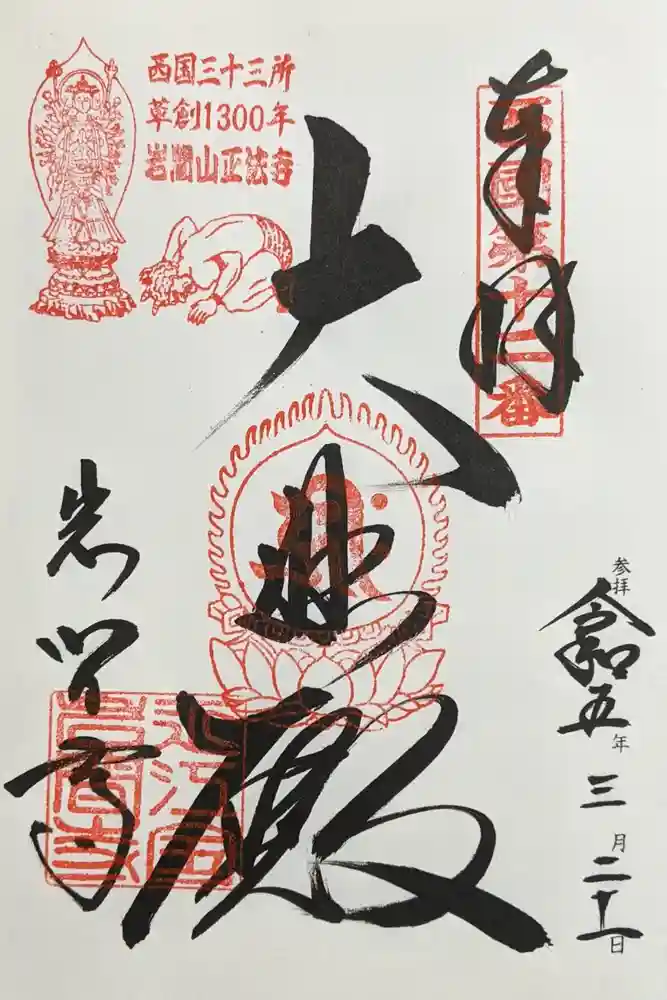 奉拝
西國第十二番
西国三十三所
草創1300年
岩間山正法寺
大悲殿
岩間寺
近江国
岩間寺
参拝
令和五年三月二十一日